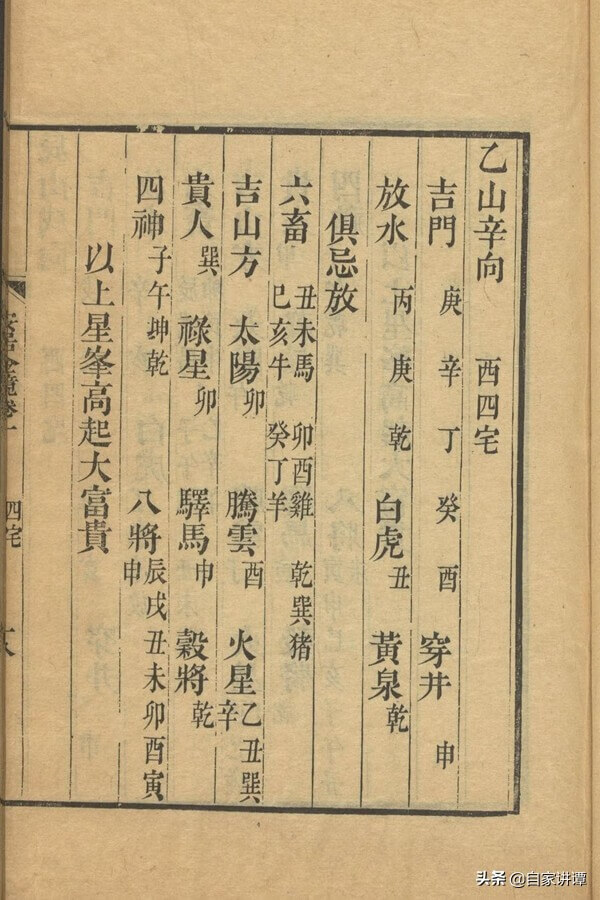 乙山辛向 西四宅
吉門 庚 辛 丁 癸 酉 穿井 申
放水 丙 庚 乾 白虎丑 黃泉乾
俱忌放
六畜 丑未馬 卯酉雞 乾巽猪
巳亥牛 癸丁羊
吉山方 太陽卯 騰雲酉 火星乙丑巽辛
貴人巽 祿星卯 驛馬申 穀將乾
四神子午坤乾 八將辰戌丑未卯酉寅申
以上星峯高起大富貴
卷一
四宅
头条 @自家讲谭